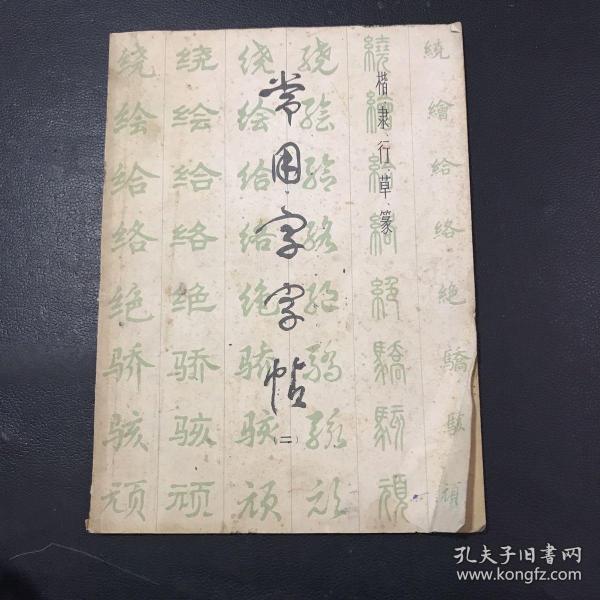 楷、隶、行、草、篆
常用字字帖
(二)
绕绘给络绝骄骇顽
绕绘给络绝骄骇顽
绕绘给络绝骄骇顽
绕绘给络绝骄骇顽
繞繪給絡絕驕駭頑
繞繪給絡絶驕駭頑
孔夫子旧书网
www.kongfz.com